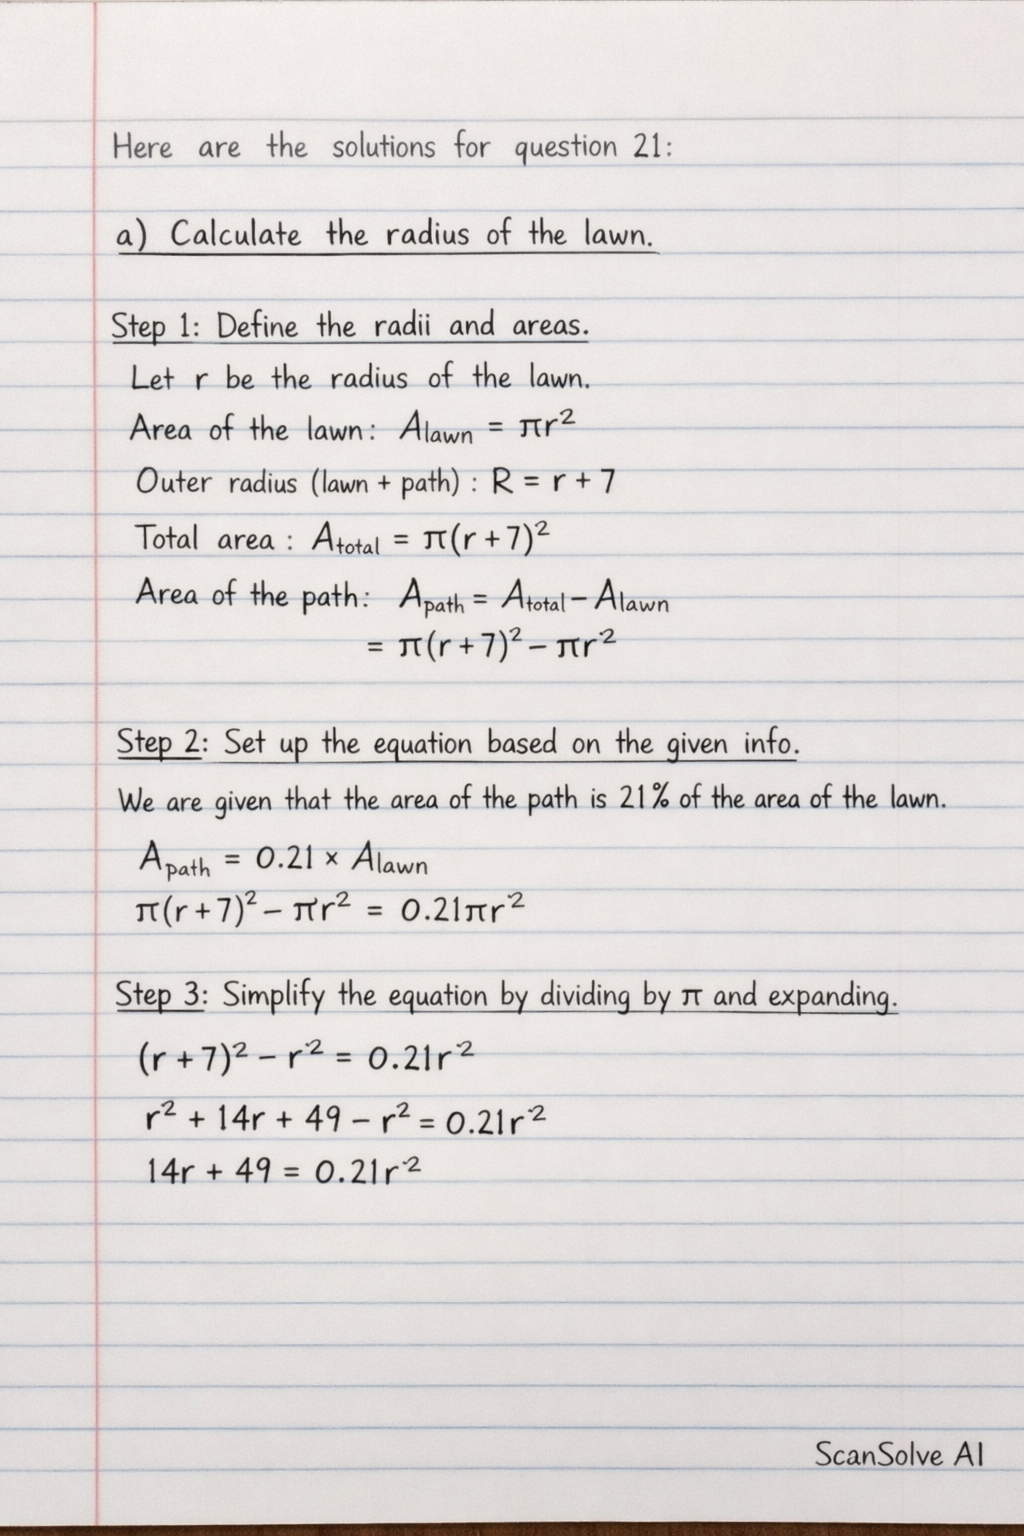 Here are the solutions for question 21:
a) Calculate the radius of the lawn.
Step 1: Define the radii and areas.
Let r be the radius of the lawn.
Area of the lawn: A_lawn = πr²
Outer radius (lawn + path) : R = r + 7
Total area : A_total = π(r + 7)²
Area of the path: A_path = A_total − A_lawn
= π(r + 7)² − πr²
Step 2: Set up the equation based on the given info.
We are given that the area of the path is 21% of the area of the lawn.
A_path = 0.21 × A_lawn
π(r + 7)² − πr² = 0.21πr²
Step 3: Simplify the equation by dividing by π and expanding.
(r + 7)² − r² = 0.21r²
r² + 14r + 49 − r² = 0.21r²
14r + 49 = 0.21r²
ScanSolve AI